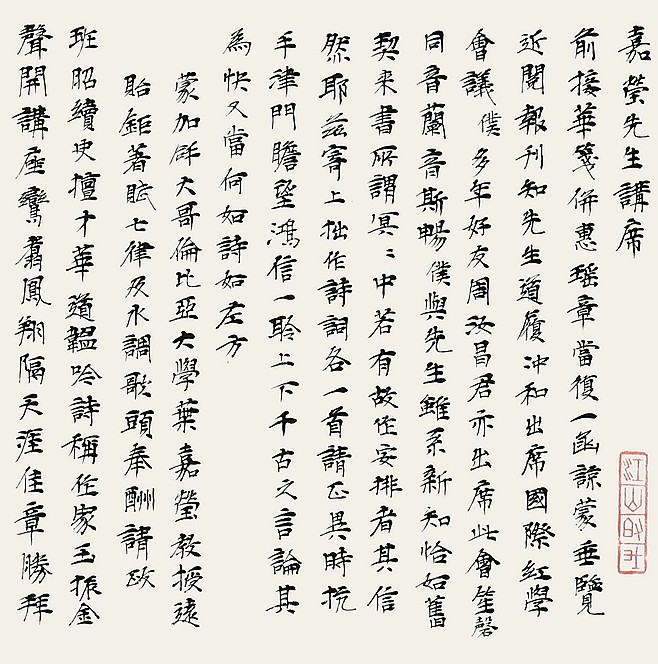 嘉瑩先生講席
前接華箋併惠瑤章當復一函諒蒙垂覽
近閱報刊知先生道履冲和出席國際红學
會議僕多年好友周汝昌君亦出席此會笙磬
同音蘭音斯暢僕與先生雖系新知恰如舊
契来書所謂冥冥中若有故作安排者其信
然耶茲寄上拙作詩詞各一首請正異時抗
手津門瞻望鴻信一聆上下千古之言論其
為快又當何如詩如左方
蒙加拿大哥倫比亞大學葉嘉瑩教授遠
貽鉅著賦七律及水調歌頭奉酬請政
班昭續史擅才華道韞吟詩稱作家玉振金
聲開講座鸞翥鳳翔隔天涯佳章勝拜